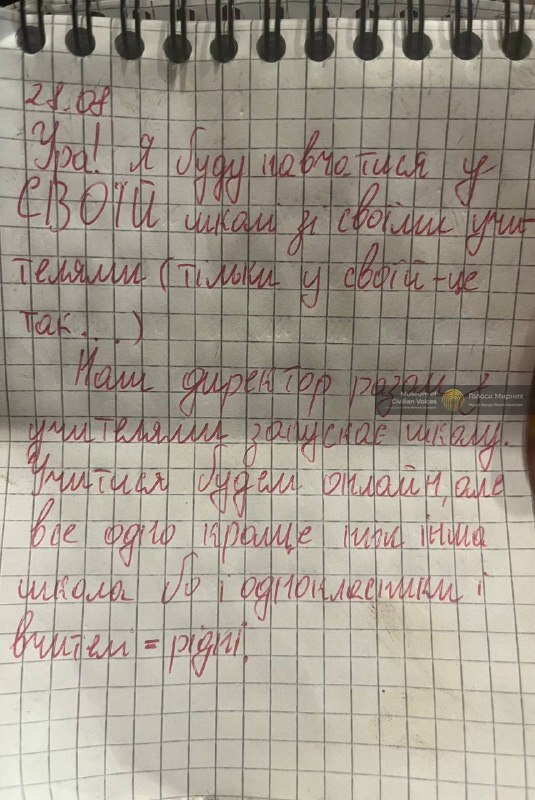 28.08
Ура! Я буду навчатися у
СВОЇЙ школі зі своїми учи-
телями (тільки у своїй - це
так...)
Наш директор разом з
учителями запускає школу.
Учитися будем онлайн, але
все одно краще ніж інша
школа бо і однокласники і
вчителі = рідні.
Museum of
Civilian Voices
Голоси Мирних